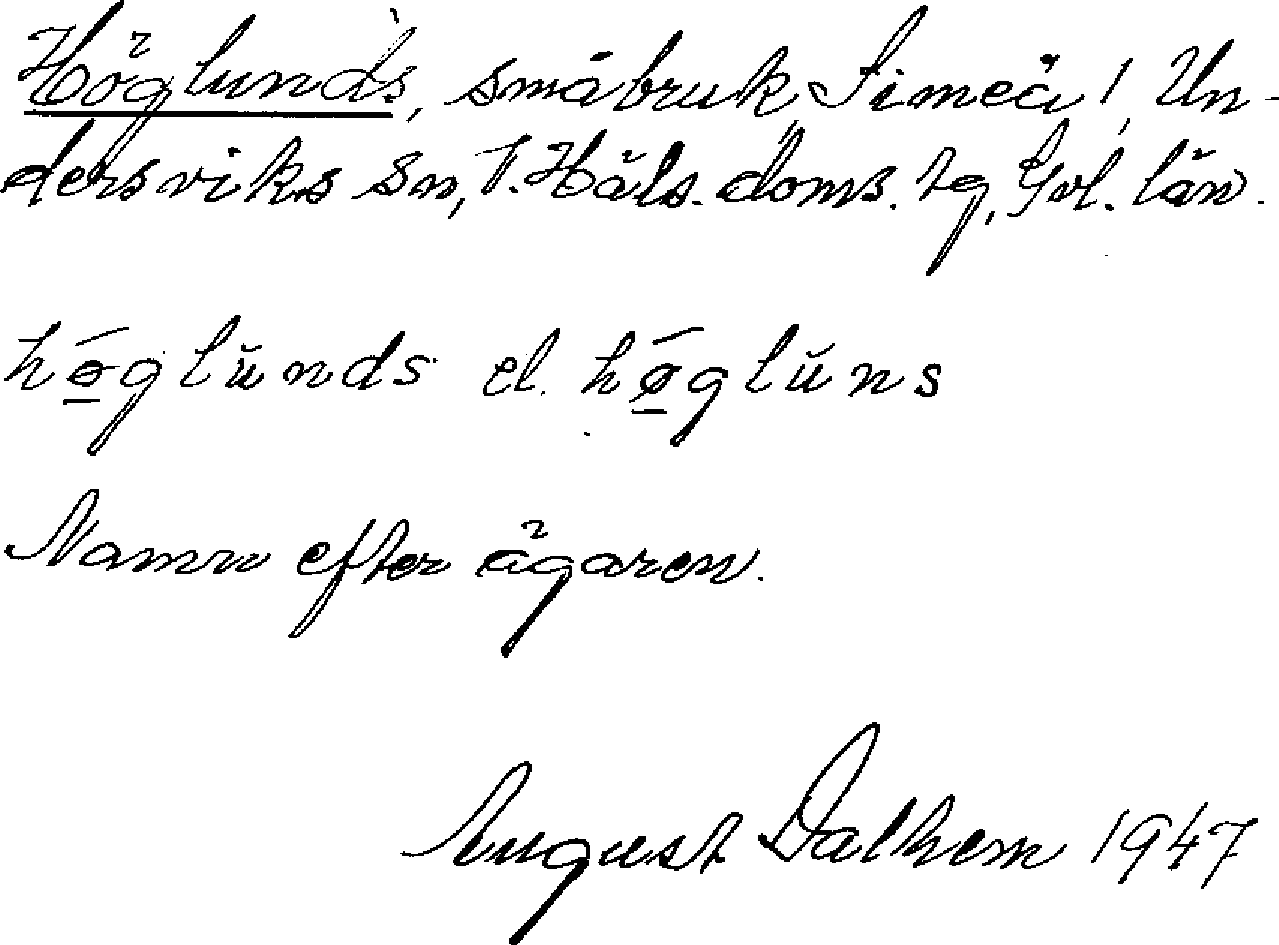 Höglunds, småbruk, Simeå 1, Un-
dersviks sn, V. Häls. doms. tg, Gvl. län.
hǿ̲glŭnds el. hǿ̲glŭns
Namn efter ägaren.
August Dalhem 1947